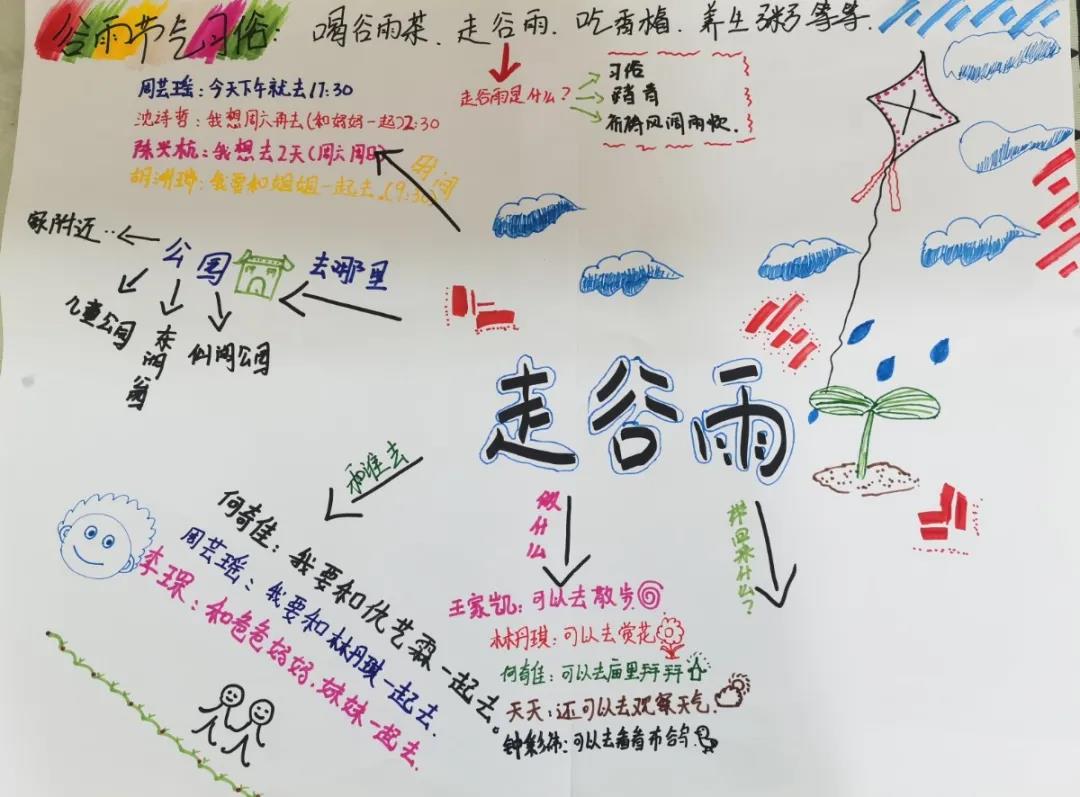 谷雨节气习俗：喝谷雨茶、走谷雨、吃香椿、养生粥等等.
走谷雨是什么？
习俗
踏青
祈祷风调雨顺.
周芸瑶：今天下午就去17:30
沈诗哲：我想周六再去(和妈妈一起)2:30
陈奕杭：我想去2天(周六周日)
胡洲瑞：我要和姐姐一起去.(9:30)
时间
去哪里
公园
家附近..
儿童公园
东湖公园
仙湖公园
走谷雨
和谁去
何奇佳：我要和仇艺霖一起去。
周芸瑶：我要和林丹琪一起去.
李琛：和爸爸妈妈.妹妹一起去.
做什么
王家凯：可以去散步
林丹琪：可以去赏花
何奇佳：可以去庙里拜拜
天天：还可以去观察天气.
可以去看看布谷鸟
带回来什么？